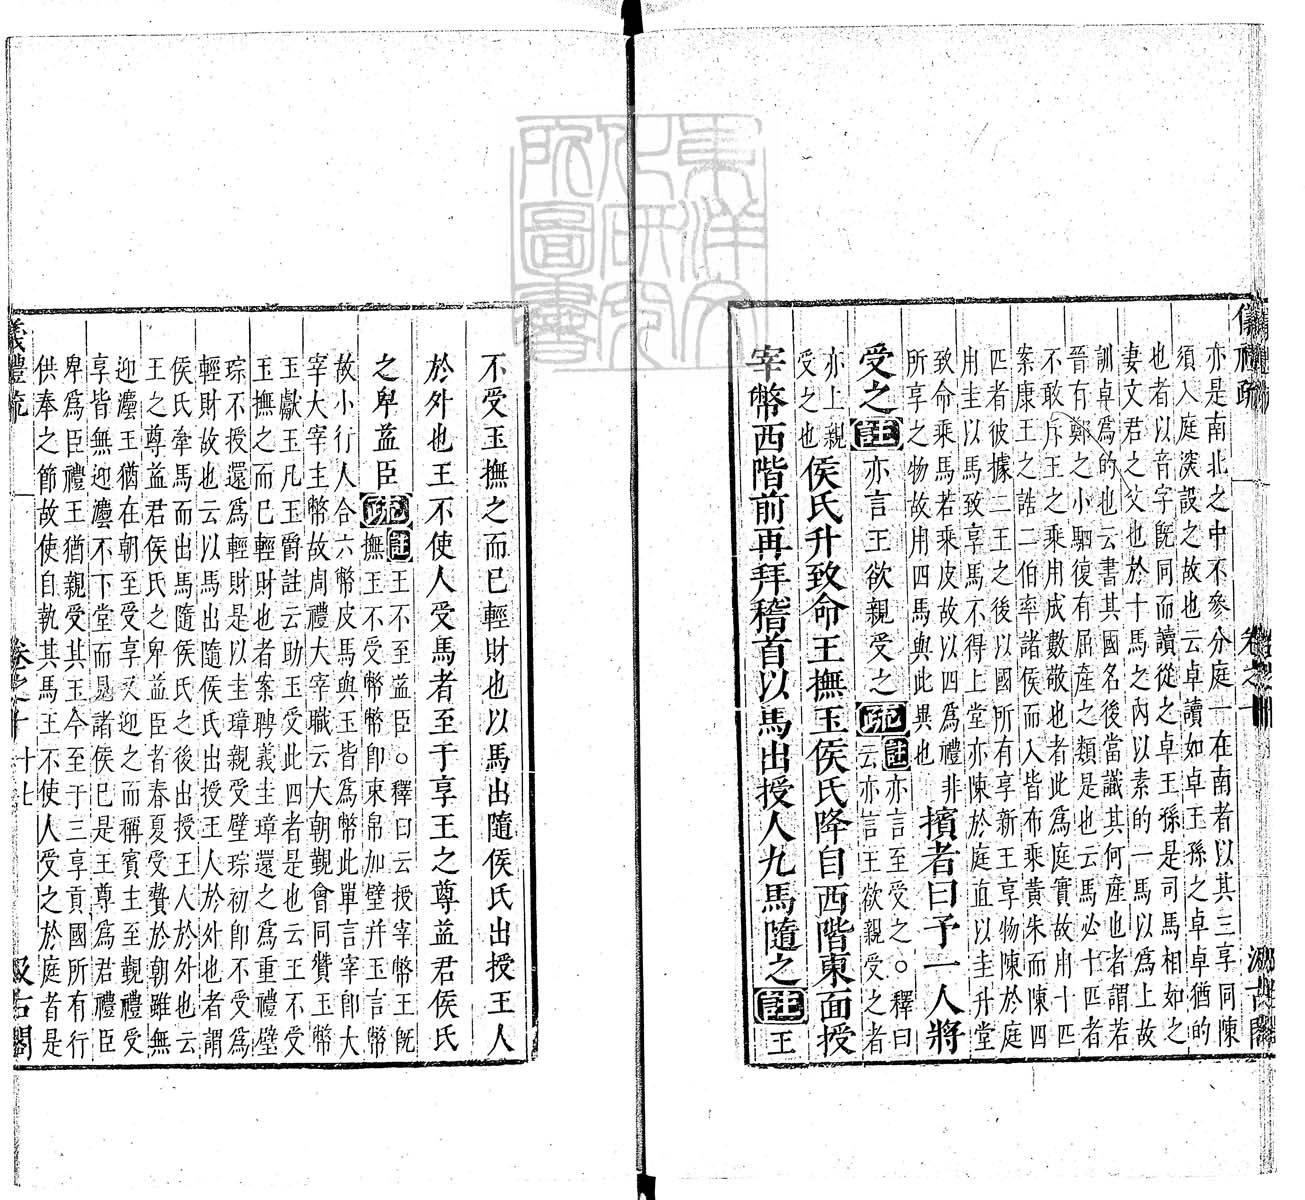 儀禮疏 卷之十 汲古閣
亦是南北之中不參分庭一在南者以其三享同陳
須入庭深設之故也云卓讀如卓王孫之卓卓猶的
也者以音字既同而讀從之卓王孫是司馬相如之
妻文君之父也於十馬之內以素的一馬以爲上故
訓卓爲的也云書其國名後當識其何產也者謂若
晉有鄭之小駟復有屈產之類是也云馬必十匹者
不敢斥王之乘用成數敬也者此爲庭實故用十匹
案康王之誥二伯率諸侯而入皆布乘黃朱而陳四
匹者彼據二王之後以國所有享新王享物陳於庭
用圭以馬致享馬不得上堂亦陳於庭直以圭升堂
致命乘馬若乘皮故以四爲禮非
所享之物故用四馬與此異也
擯者曰予一人將
受之註亦言王欲親受之疏註亦言至受之。釋曰
云亦言王欲親受之者
亦上親
受之也
侯氏升致命王撫玉侯氏降自西階東面授
宰幣西階前再拜稽首以馬出授人九馬隨之註王
不受玉撫之而已輕財也以馬出隨侯氏出授王人
於外也王不使人受馬者至于享王之尊益君侯氏
之卑益臣疏註王不至益臣。釋曰云授宰幣王既
撫王不受幣幣即束帛加璧并玉言幣
故小行人合六幣皮馬與玉皆爲幣此單言宰即大
宰大宰主幣故周禮大宰職云大朝覲會同贊玉幣
玉獻玉凡玉爵註云助玉受此四者是也云王不受
玉撫之而已輕財也者案聘義圭璋還之爲重禮璧
琮不授還爲輕財是以圭璋親受璧琮初即不受爲
輕財故也云以馬出隨侯氏出授王人於外也者謂
侯氏牽馬而出馬隨侯氏之後出授王人於外也云
王之尊益君侯氏之卑益臣者春夏受贄於朝雖無
迎灋王猶在朝至受享又迎之而稱賓主至覲禮受
享皆無迎灋不下堂而見諸侯已是王尊爲君禮臣
卑爲臣禮王猶親受其玉今至于三享貢國所有行
供奉之節故使自執其馬王不使人受之於庭者是
儀禮疏 卷之十 十七 汲古閣
東洋文化研究所圖書